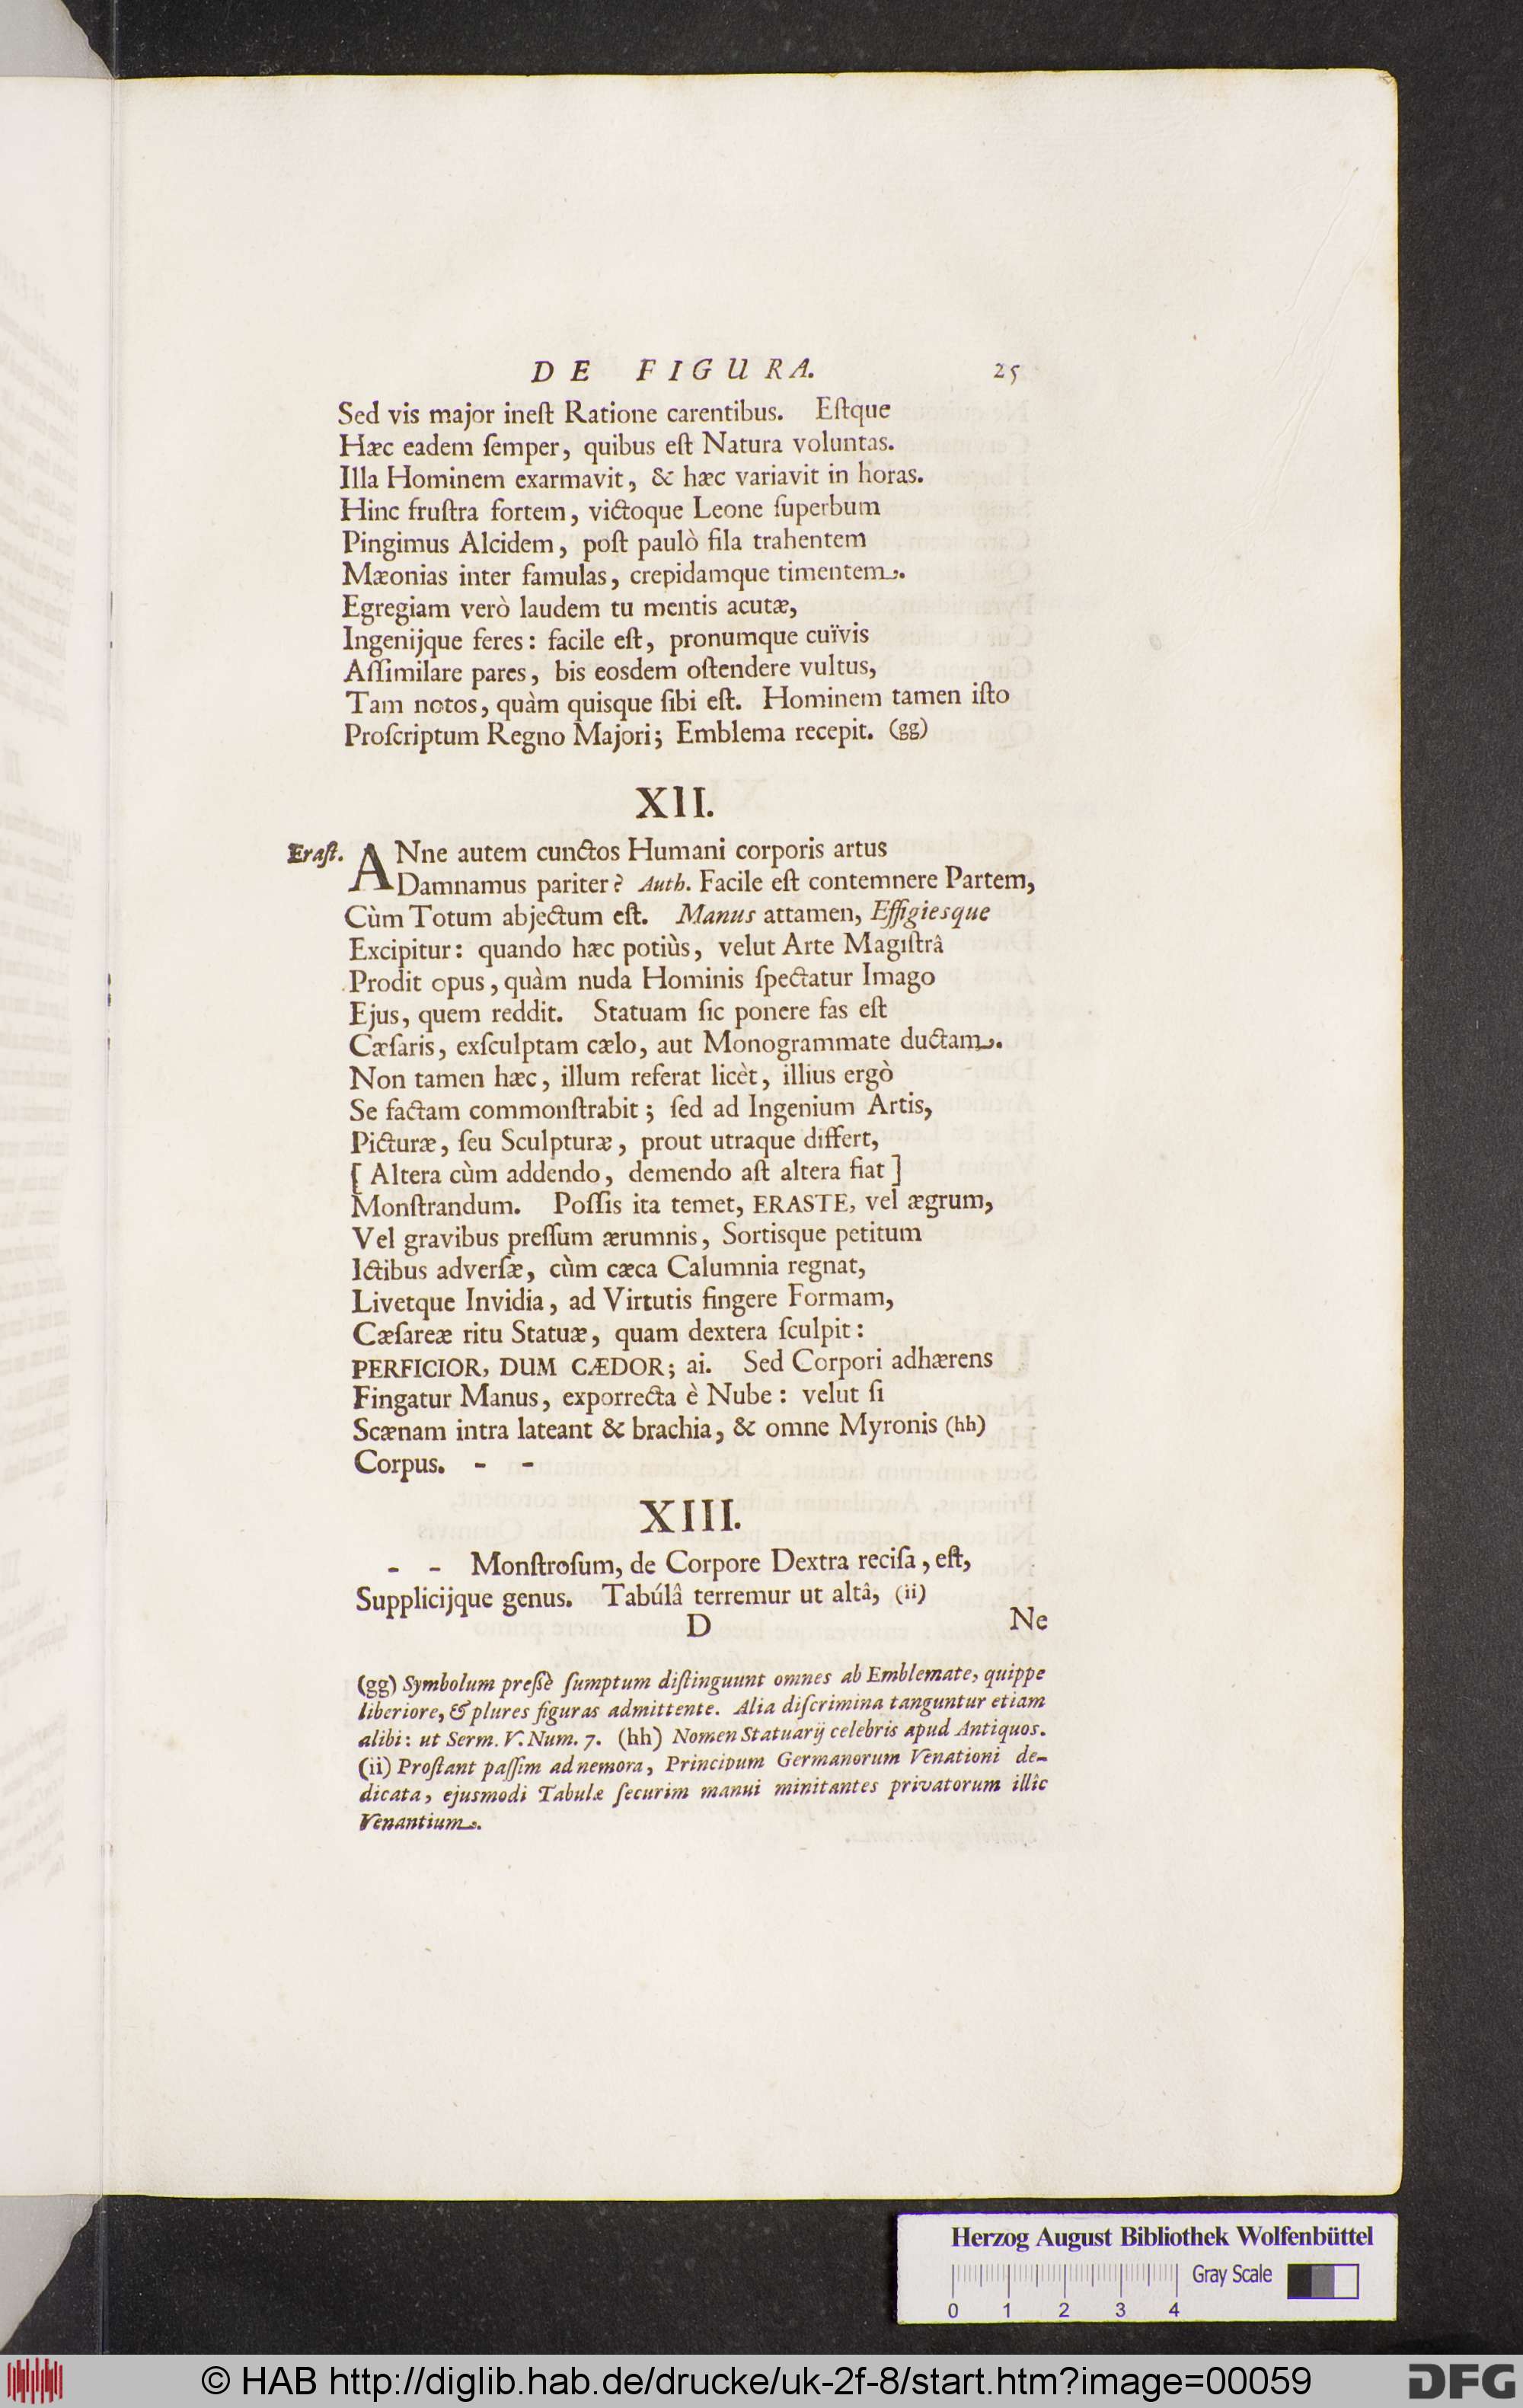 DE FIGURA. 25
Sed vis major ineſt Ratione carentibus. Eſtque
Hæc eadem ſemper, quibus eſt Natura voluntas.
Illa Hominem exarmavit, & hæc variavit in horas.
Hinc fruſtra fortem, victoque Leone ſuperbum
Pingimus Alcidem, poſt paulò fila trahentem
Mæonias inter famulas, crepidamque timentem.
Egregiam verò laudem tu mentis acutæ,
Ingenijque feres: facile eſt, pronumque cuïvis
Aſſimilare pares, bis eosdem oſtendere vultus,
Tam notos, quàm quisque ſibi eſt. Hominem tamen iſto
Proſcriptum Regno Majori; Emblema recepit. (gg)
XII.
Eraſt. ANne autem cunctos Humani corporis artus
Damnamus pariter? Auth. Facile eſt contemnere Partem,
Cùm Totum abjectum eſt. Manus attamen, Effigiesque
Excipitur: quando hæc potiùs, velut Arte Magiſtrâ
Prodit opus, quàm nuda Hominis ſpectatur Imago
Ejus, quem reddit. Statuam ſic ponere fas eſt
Cæſaris, exſculptam cælo, aut Monogrammate ductam.
Non tamen hæc, illum referat licèt, illius ergò
Se factam commonſtrabit; ſed ad Ingenium Artis,
Picturæ, ſeu Sculpturæ, prout utraque differt,
[ Altera cùm addendo, demendo aſt altera fiat ]
Monſtrandum. Poſſis ita temet, ERASTE, vel ægrum,
Vel gravibus preſſum ærumnis, Sortisque petitum
Ictibus adverſæ, cùm cæca Calumnia regnat,
Livetque Invidia, ad Virtutis fingere Formam,
Cæſareæ ritu Statuæ, quam dextera ſculpit:
PERFICIOR, DUM CÆDOR; ai. Sed Corpori adhærens
Fingatur Manus, exporrecta è Nube: velut ſi
Scænam intra lateant & brachia, & omne Myronis (hh)
Corpus. - -
XIII.
- - Monſtroſum, de Corpore Dextra reciſa, eſt,
Supplicijque genus. Tabúlâ terremur ut altâ, (ii)
D Ne
(gg) Symbolum preſſè ſumptum diſtinguunt omnes ab Emblemate, quippe
liberiore, & plures figuras admittente. Alia diſcrimina tanguntur etiam
alibi: ut Serm. V. Num. 7. (hh) Nomen Statuarij celebris apud Antiquos.
(ii) Proſtant paſſim ad nemora, Principum Germanorum Venationi de-
dicata, ejusmodi Tabulæ ſecurim manui minitantes privatorum illîc
Venantium.
Herzog August Bibliothek Wolfenbüttel
Gray Scale
0 1 2 3 4
© HAB http://diglib.hab.de/drucke/uk-2f-8/start.htm?image=00059
DFG